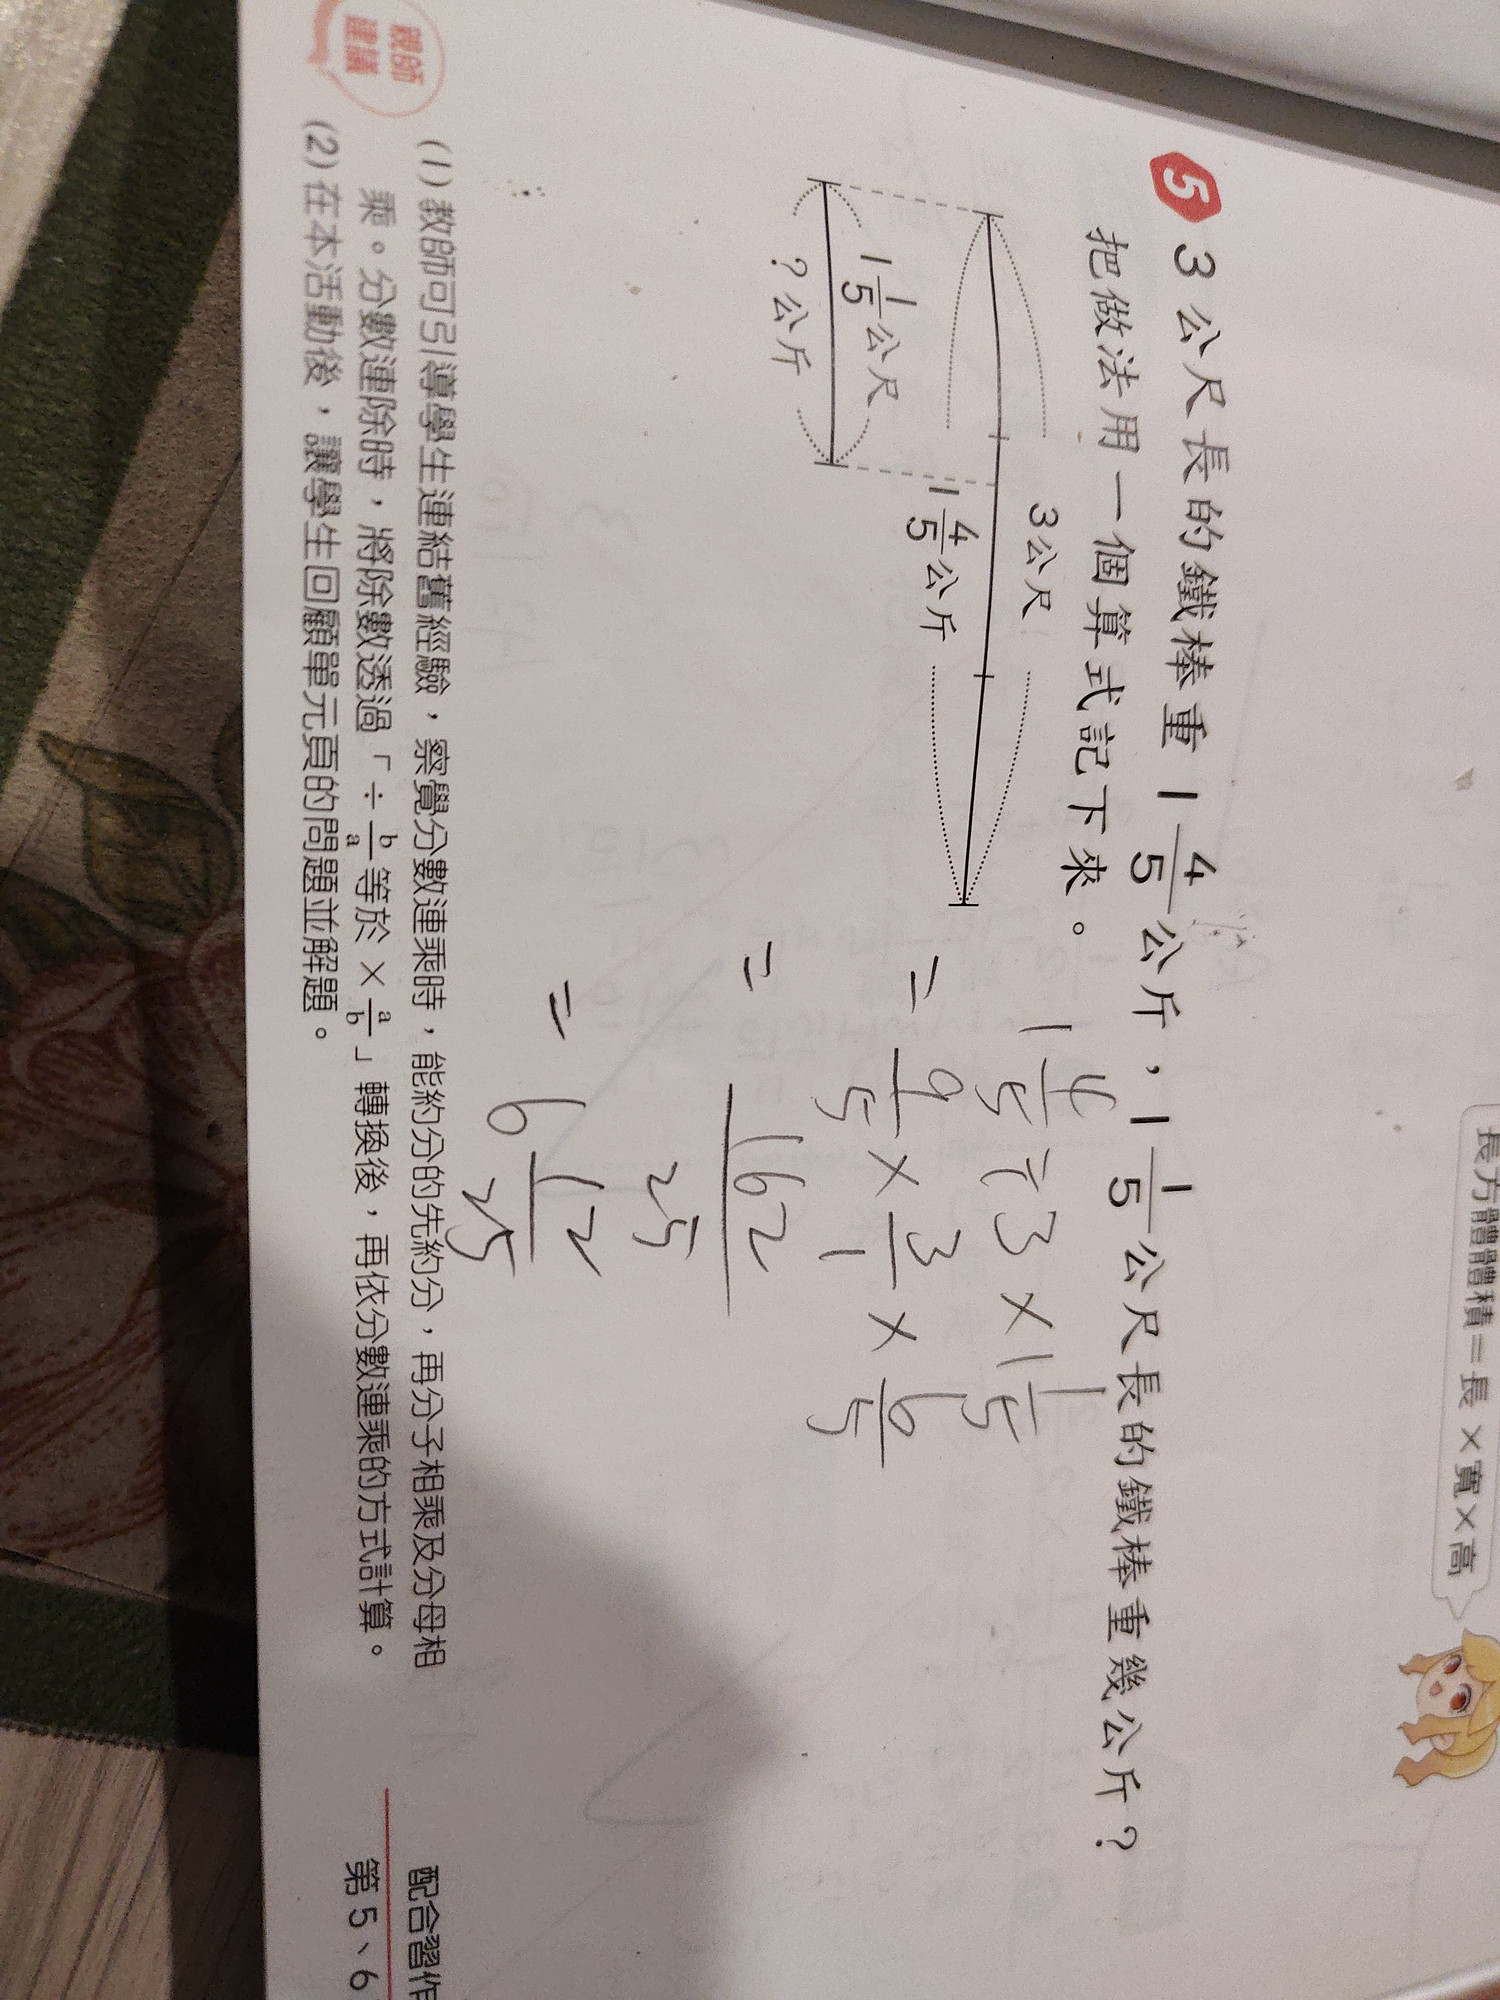 長方體體積＝長×寬×高
5 3公尺長的鐵棒重1 4/5公斤，1 1/5公尺長的鐵棒重幾公斤？
把做法用一個算式記下來。
3公尺
1 4/5公斤
1 1/5公尺
?公斤
1 4/5 ÷ 3 × 1 1/5
= 9/5 × 3/1 × 6/5
= 162/25
= 6 12/25
親師建議
(1)教師可引導學生連結舊經驗，察覺分數連乘時，能約分的先約分，再分子相乘及分母相
乘。分數連除時，將除數透過「÷b/a等於×a/b」轉換後，再依分數連乘的方式計算。
(2)在本活動後，讓學生回顧單元頁的問題並解題。
配合習作
第5、6